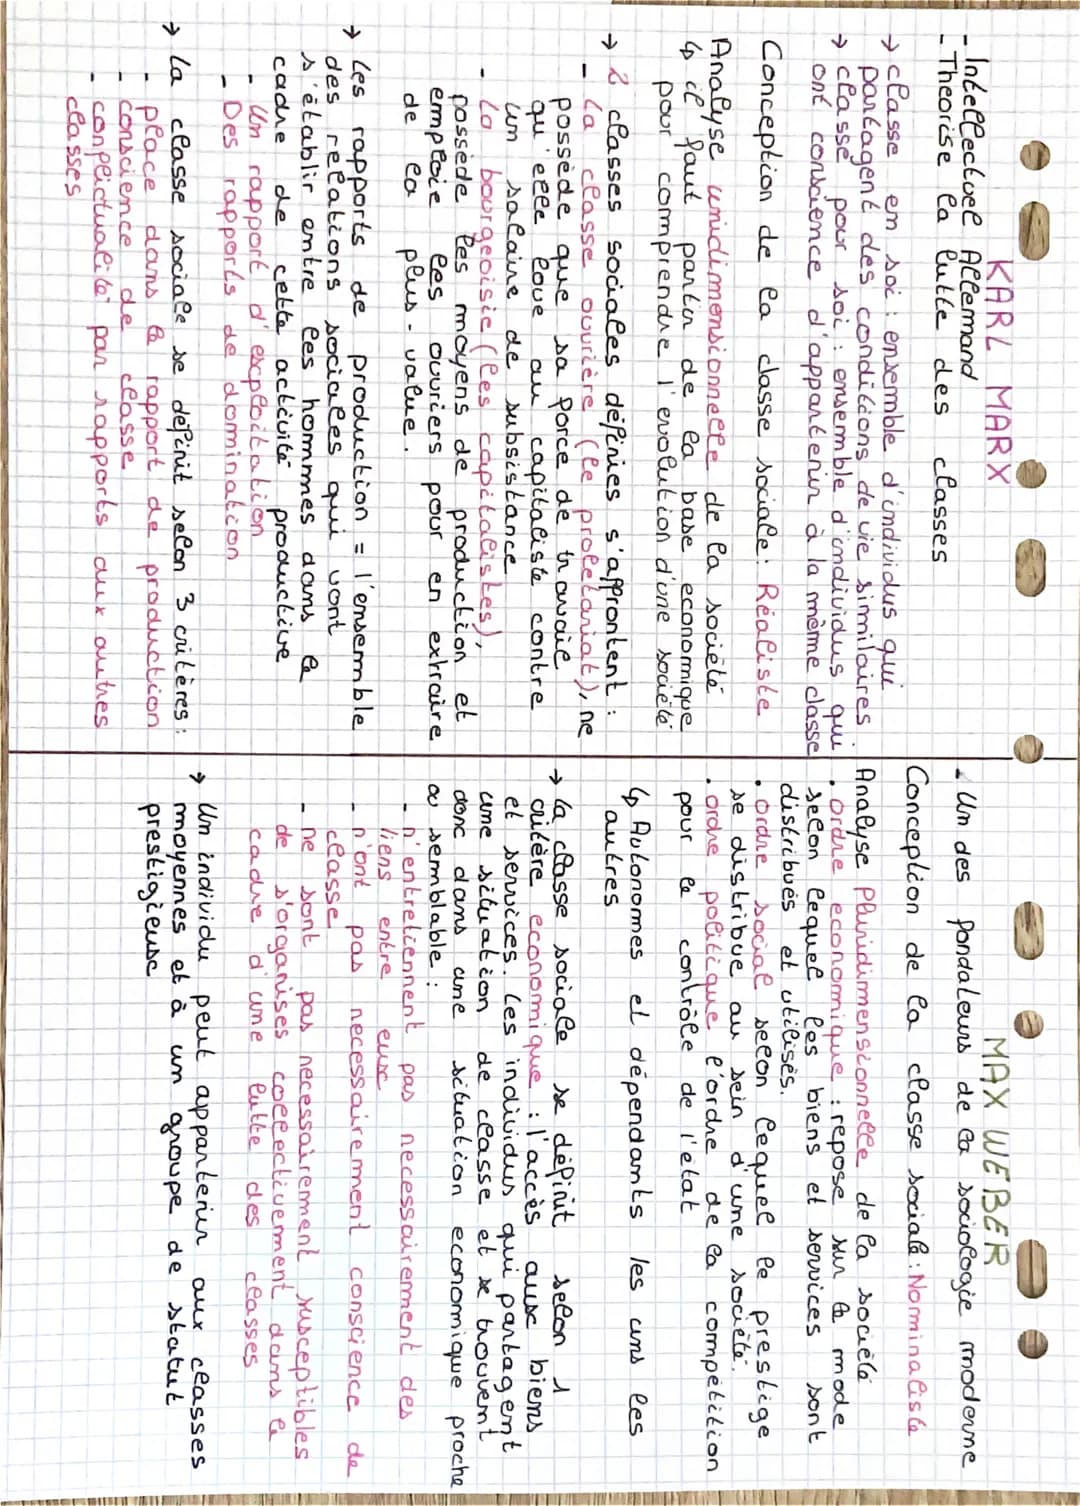 KARL MARX
- Intellectuel Allemand
- Théorise la lutte des classes
→ classe en soi : ensemble d'individus qui
partagent des conditions de vie similaires
→ classe pour soi : ensemble d'individus qui
ont conscience d'appartenir à la même classe
Conception de la classe sociale : Réaliste
Analyse unidimensionnelle de la société
↳ il faut partir de la base economique
pour comprendre l'evolution d'une société
→ 2 classes sociales définies s'affrontent :
- La classe ouvrière (le proletariat), ne
possède que sa force de travail
qu'elle loue au capitaliste contre
un salaire de subsistance
- La bourgeoisie (les capitalistes),
possède les moyens de production et
emploie les ouvriers pour en extraire
de la plus-value.
→ Les rapports de production = l'ensemble
des relations sociales qui vont
s'établir entre les hommes dans le
cadre de cette activité productive
- Un rapport d'exploitation
- Des rapports de domination
→ La classe sociale se définit selon 3 critères :
- place dans le rapport de production
- conscience de classe
- conflictualité par rapports aux autres
classes
MAX WEBER
- Un des fondateurs de la sociologie moderne
Conception de la classe sociale : Nominaliste
Analyse Pluridimensionnelle de la société
. ordre economique : repose sur le mode
selon lequel les biens et services sont
distribués et utilisés.
. ordre social selon lequel le prestige
se distribue au sein d'une société.
. ordre politique l'ordre de la compétition
pour le contrôle de l'état
↳ Autonomes et dépendants les uns les
autres
→ la classe sociale se définit selon 1
critère economique : l'accès aux biens
et services. Les individus qui partagent
une situation de classe et se trouvent
donc dans une situation economique proche
ou semblable :
- n'entretiennent pas necessairement des
liens entre eux
- n'ont pas necessairement conscience de
classe
- ne sont pas necessairement susceptibles
de s'organises collectivement dans le
cadre d'une lutte des classes
→ Un individu peut appartenir aux classes
moyennes et à un groupe de statut
prestigieuse